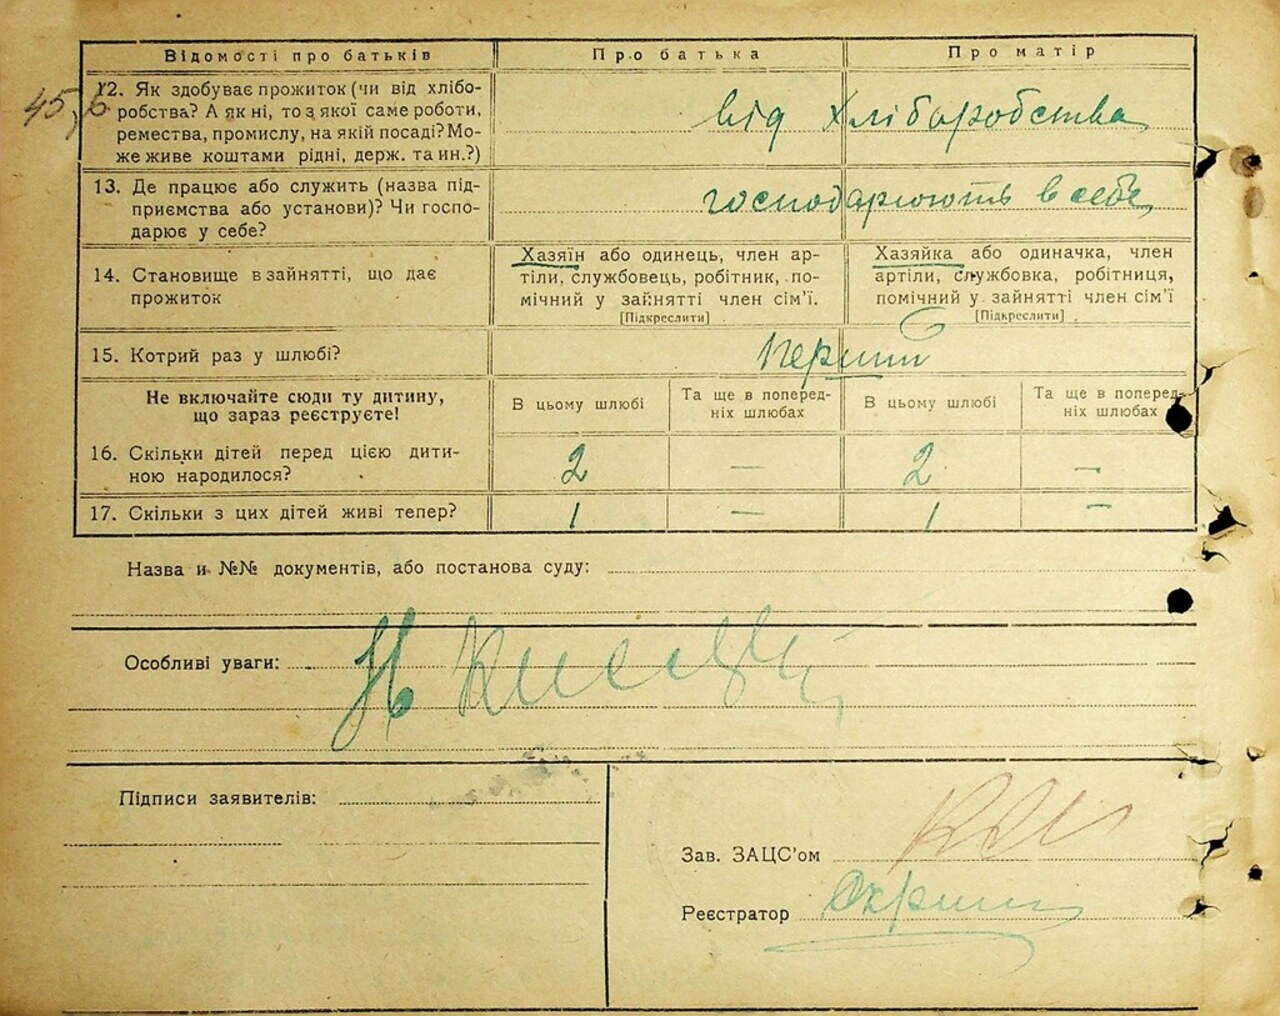 Відомості про батьків
Про батька
Про матір
45,6
12. Як здобуває прожиток (чи від хлібо-
робства? А як ні, то з якої саме роботи,
ремества, промислу, на якій посаді? Мо-
же живе коштами рідні, держ. та ин.?)
від хліборобства
13. Де працює або служить (назва під-
приємства або установи)? Чи госпо-
дарює у себе?
господарюють в себе
14. Становище в зайнятті, що дає
прожиток
Хазяїн або одинець, член ар-
тілі, службовець, робітник, по-
мічний у зайнятті член сім'ї.
[Підкреслити]
Хазяйка або одиначка, член
артілі, службовка, робітниця,
помічний у зайнятті член сім'ї
[Підкреслити]
15. Котрий раз у шлюбі?
Перший
Не включайте сюди ту дитину,
що зараз реєструєте!
В цьому шлюбі
Та ще в поперед-
ніх шлюбах
В цьому шлюбі
Та ще в поперед-
ніх шлюбах
16. Скільки дітей перед цією дити-
ною народилося?
2
—
2
—
17. Скільки з цих дітей живі тепер?
1
—
1
—
Назва и №№ документів, або постанова суду:
Особливі уваги:
Підписи заявителів:
Зав. ЗАЦС'ом
Реєстратор